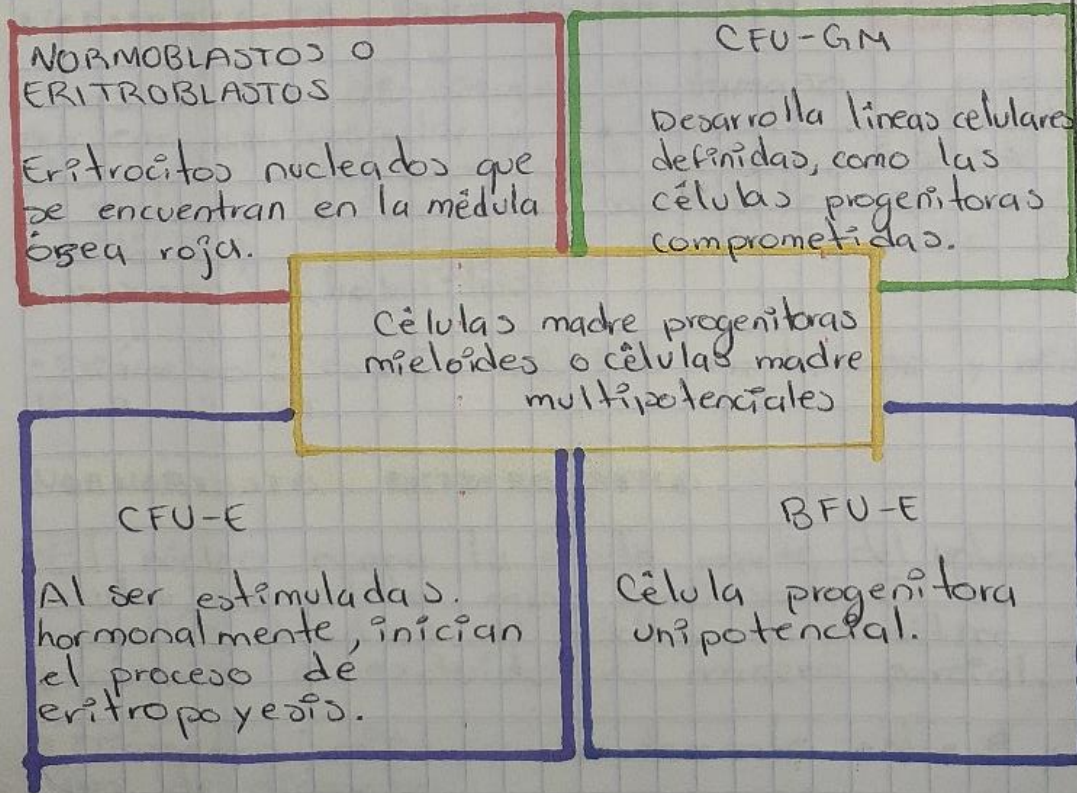 NORMOBLASTOS O
ERITROBLASTOS
Eritrocitos nucleados que
se encuentran en la médula
ósea roja.
CFU-GM
Desarrolla líneas celulares
definidas, como las
células progenitoras
comprometidas.
Células madre progenitoras
mieloides o células madre
multipotenciales
CFU-E
Al ser estimuladas.
hormonalmente, inician
el proceso de
eritropoyesis.
BFU-E
Célula progenitora
unipotencial.